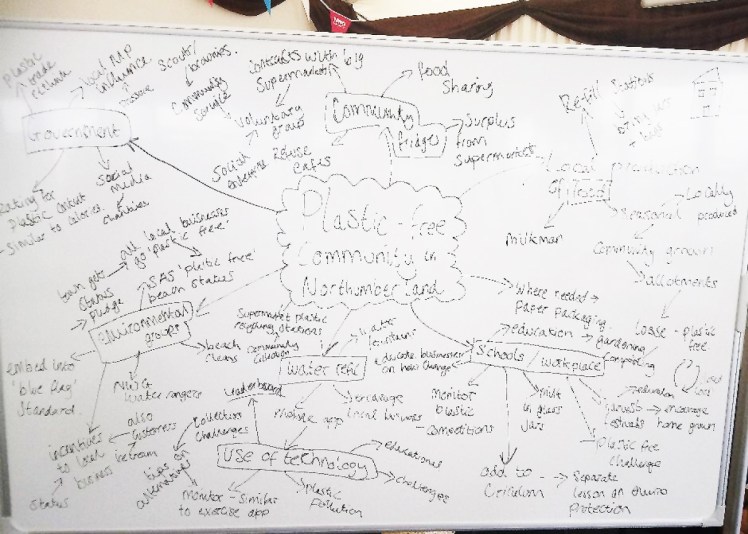 Plastic
trade
rethink
local AAP
influence
Scouts/
brownies.
Community
Service
Contracts with big
Supermarkets
food
Sharing
Community
fridges
Surplus
from
Supermarkets
Refill Stations
Government
voluntary
groups
Social
enterprise
Refuse
Cafes
Social
media
charities
rating for
plastic content
similar to calories.
Plastic-free
Community in
Northumberland
Local production
of food
Milkman
Seasonal
Locally
produced
Community grown
allotments
Loose - plastic
free
town gets
Status
pledge
all local businesses
go 'plastic free'
SAS 'plastic free'
beach status
Environmental
groups
beach
cleans
embed into
'blue flag'
Standard.
NWG
Water rangers
incentives
to local
business
also
customers
Status
Supermarket plastic
recycling stations
Community
Water
fountains
Water refil
encourage
local businesses
mobile app
Where needed →
Paper packaging
educate businesses
on how change
education
gardening
composting
Schools / workplace
monitor
plastic
- competitions
milk
in glass
jars
education
harvest
festivals
encourage
home grown
Plastic free
challenge
add to
Separate
lesson on enviro
protection
Leaderboard
Collective
challenges
Use of technology
educational
challenges
plastic
pollution
tips on
alternatives
monitor - similar
to exercise app